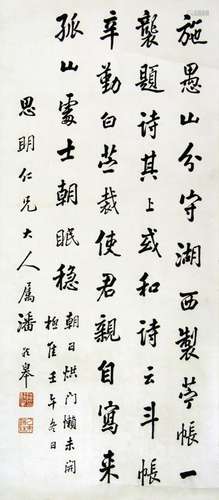 施愚山分守湖西製苧帳一
襲題詩其上或和詩云斗帳
辛勤白苧裁使君親自寫來
孤山處士朝眠穩
朝日烘门懶未開
壬午冬日
思明仁兄大人属潘齡皋